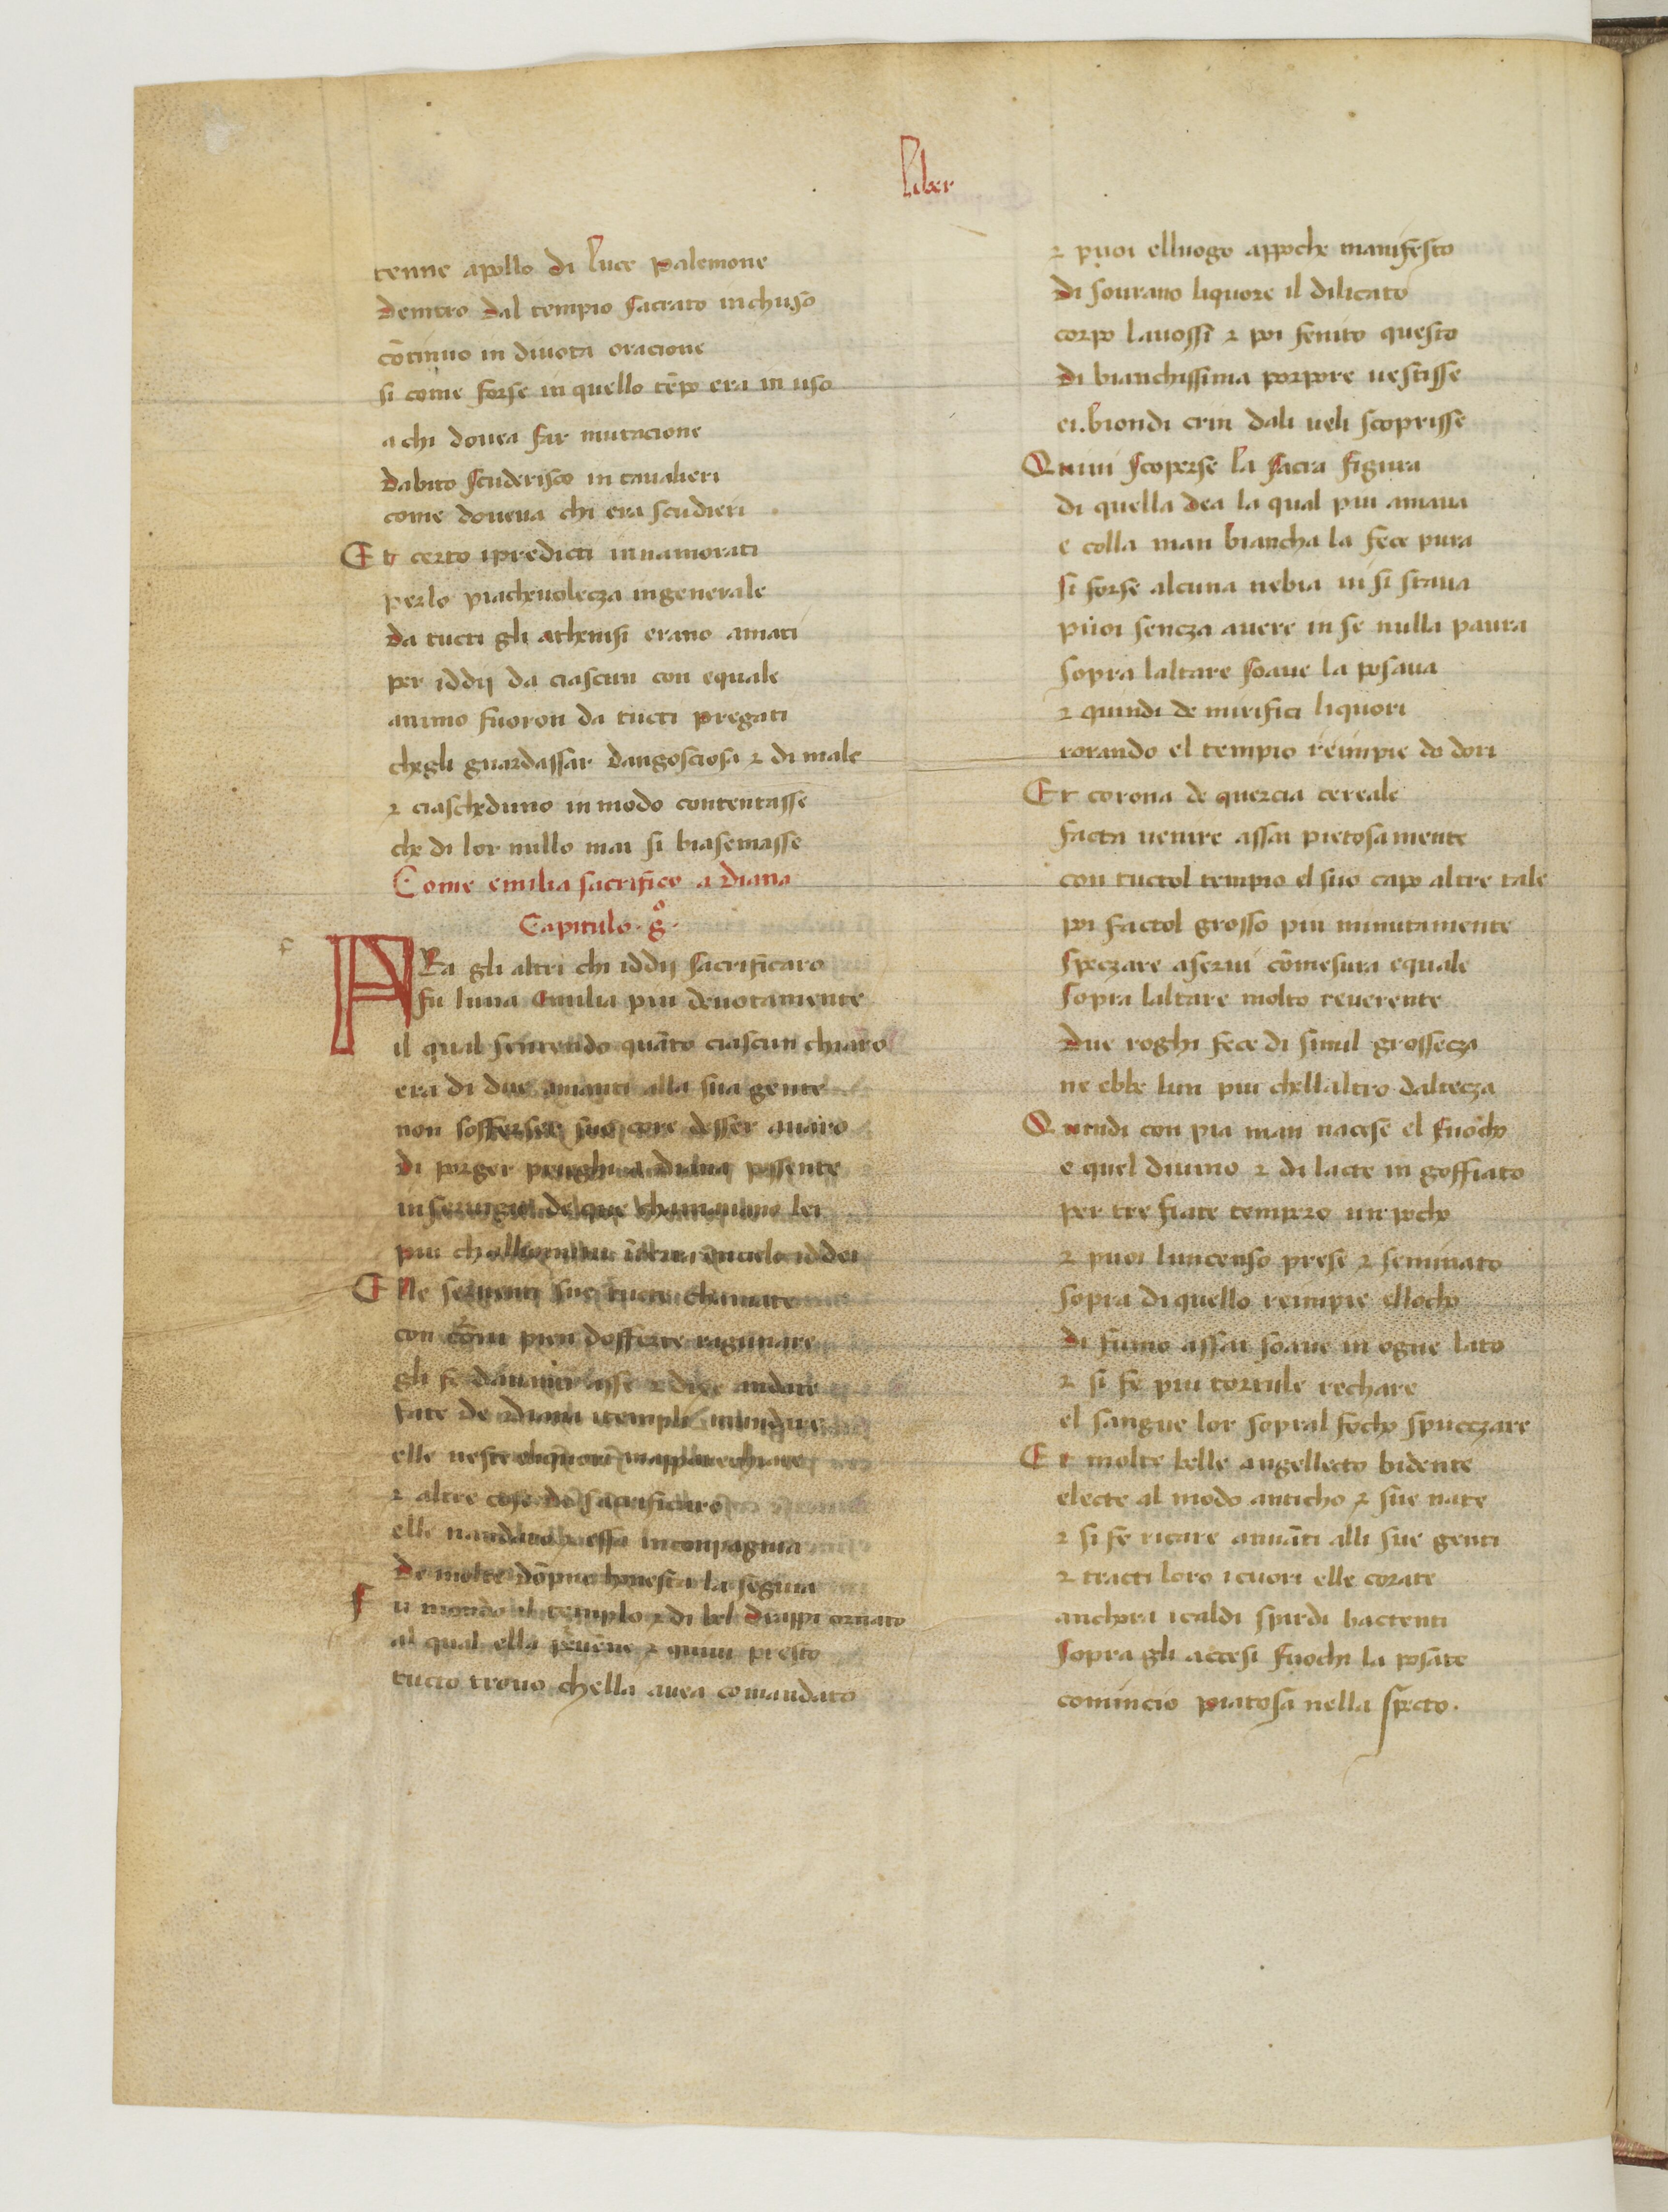 liber
tenne apollo di luce palemone
dentro dal tempio sacrato inchuso
cōtinuo in diuota oracione
si come forse in quello tēpo era in uso
a chi douea far mutacione
dabito scuderisco in caualieri
come doueua chi era scudieri
Et certo ipredicti innamorati
perlo piacheuolecza ingenerale
da tucti gli athenisi erano amati
per iddij da ciascun con equale
animo fuoron da tucti pregati
chegli guardassar dangosciosa ⁊ di male
⁊ ciascheduno in modo contentasse
che di lor nullo mai si biasemasse
Come emilia sacrifico a diana
Capitulo · 8° ·
f
FRa gli altri chi iddij sacrificaro
fu luna Emilia piu deuotamente
il qual sentendo quāto ciascun chiaro
era di due amanti alla sua gente
non sofferse suo core desser auaro
di porger prieghi a diana possente
in seruigio de que chamauano lei
piu ch
Elle seruenti sue tucte chiamate
con corni pien dofferte ragunare
gli fe dauanti asse ⁊ disse andate
fate de diana itempli mundare
elle ueste eliquori mapparechiate
⁊ altre cose da sacrificare
elle nandaro ⁊ essa inconpagnia
de molte dōpne honesta la seguia
fu mondo il templo ⁊ di bel drappi ornato
al qual ella peruēne ⁊ quiui presto
tucto trouo chella auea comandato
⁊ puoi elluogo appoche manifesto
di sourano liquore il dilicato
corpo lauossi ⁊ poi fenito questo
di bianchissima porpore uestisse
ei biondi crin dali ueli scoprisse
Quiui scoperse la sacra figura
di quella dea la qual piu amaua
e colla man biancha la fece pura
si forse alcuna nebia in si staua
puoi sencza auere in se nulla paura
sopra laltare soaue la posaua
⁊ quindi de mirifici liquori
rorando el tempio reimpie do dori
Et corona de quercia cereale
facta uenire assai pietosamente
con tuctol tempio el suo capo altre tale
poi factol grosso piu minutamente
speczare aserui cōmesura equale
sopra laltare molto reuerente
due roghi fece di simil grossecza
ne ebbe lun piu chellaltro daltecza
Quindi con pia man nacese el fuocho
e quel diuino ⁊ di lacte in goffiato
per tre fiate tempero un pocho
⁊ puoi luncenso prese ⁊ seminato
sopra di quello reimpie ellocho
di fumo assai soaue in ogne lato
⁊ si fe piu tortule rechare
el sangue lor sopral focho spruczare
Et molte belle angellecto bidente
electe al modo anticho ⁊ sue nate
⁊ si fe ricare auuāti alli sue genti
⁊ tracti loro icuori elle corate
anchora icaldi spirdi bactenti
sopra gli accesi fuochi la posate
comincio piatosa nella specto ·